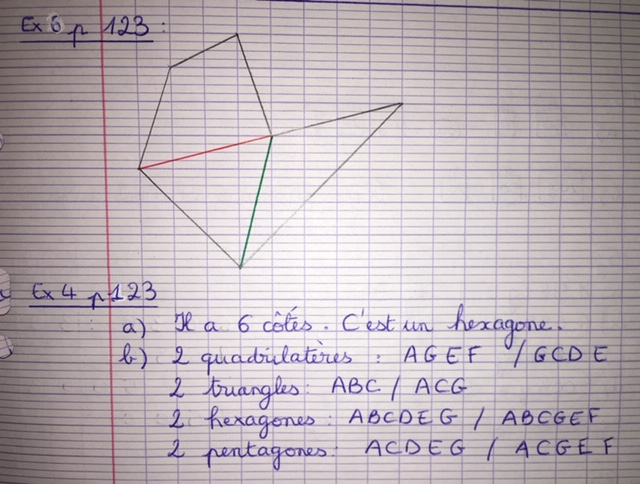 Ex 6 p 123 :
Ex 4 p 123
a) Il a 6 côtés. C'est un hexagone.
b) 2 quadrilatères : AGEF / GCDE
2 triangles : ABC / ACG
2 hexagones : ABCDEG / ABCGEF
2 pentagones : ACDEG / ACGEF